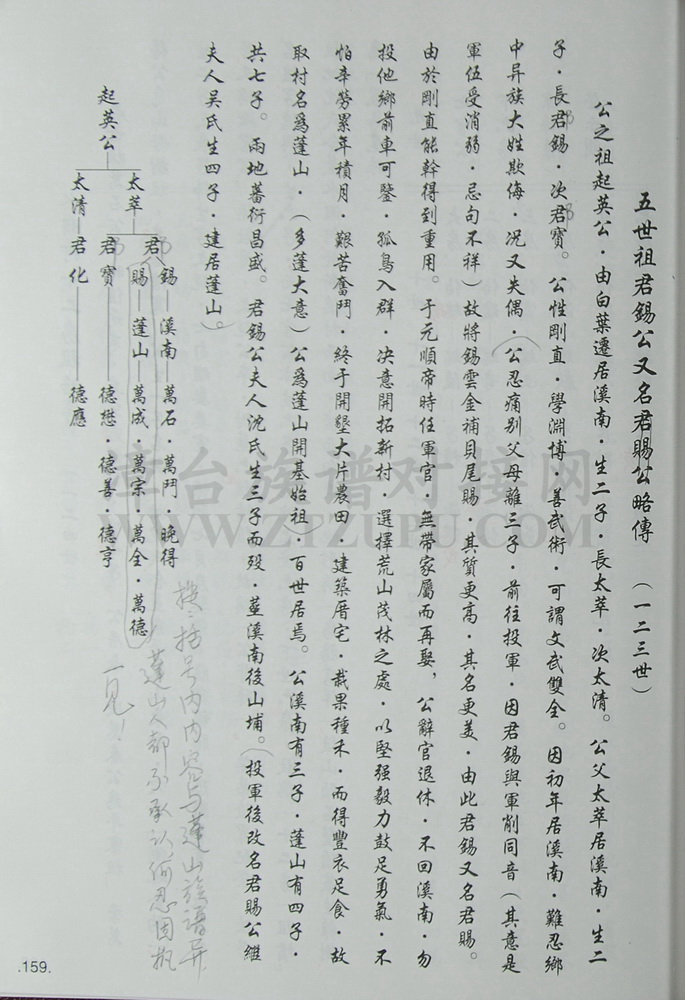 五世祖君錫公又名君賜公略傳 (一二三世)
公之祖起英公·由白葉遷居溪南·生二子·長太萃·次太清。公父太萃居溪南·生二
子·長君錫·次君寶。公性剛直·學淵博·善武術·可謂文武雙全。因初年居溪南·難忍鄉
中异族大姓欺侮·况又失偶·公忍痛别父母離三子·前往投軍·因君錫與軍削同音(其意是
軍伍受消弱·忌句不祥)故將錫雲金補貝尾賜·其質更高·其名更美·由此君錫又名君賜。
由於剛直能幹得到重用。于元順帝時任軍官·無帶家屬而再娶,公辭官退休·不回溪南·勿
投他鄉前車可鑒·孤鳥入群·决意開拓新村·選擇荒山茂林之處·以堅强毅力鼓足勇氣·不
怕辛勞累年積月·艱苦奮鬥·終于開墾大片農田·建築厝宅·栽果種禾·而得豐衣足食·故
取村名爲蓬山·(多蓬大意)公爲蓬山開基始祖·百世居焉。公溪南有三子·蓬山有四子·
共七子。兩地蕃衍昌盛。君錫公夫人沈氏生三子而殁·墓溪南後山埔。(投軍後改名君賜公繼
夫人吴氏生四子·建居蓬山。)
起英公
太萃
太清
君
錫
賜
君寶
君化
溪南 萬石·萬鬥·晚得
蓬山 萬成·萬宗·萬全·萬德
德懋·德善·德亨
德應
按:括号内内容与蓬山族譜异
蓬山人都不承认何忍因
一見!
江台族谱对接网
WWW.ZTZUPU.COM
.159.